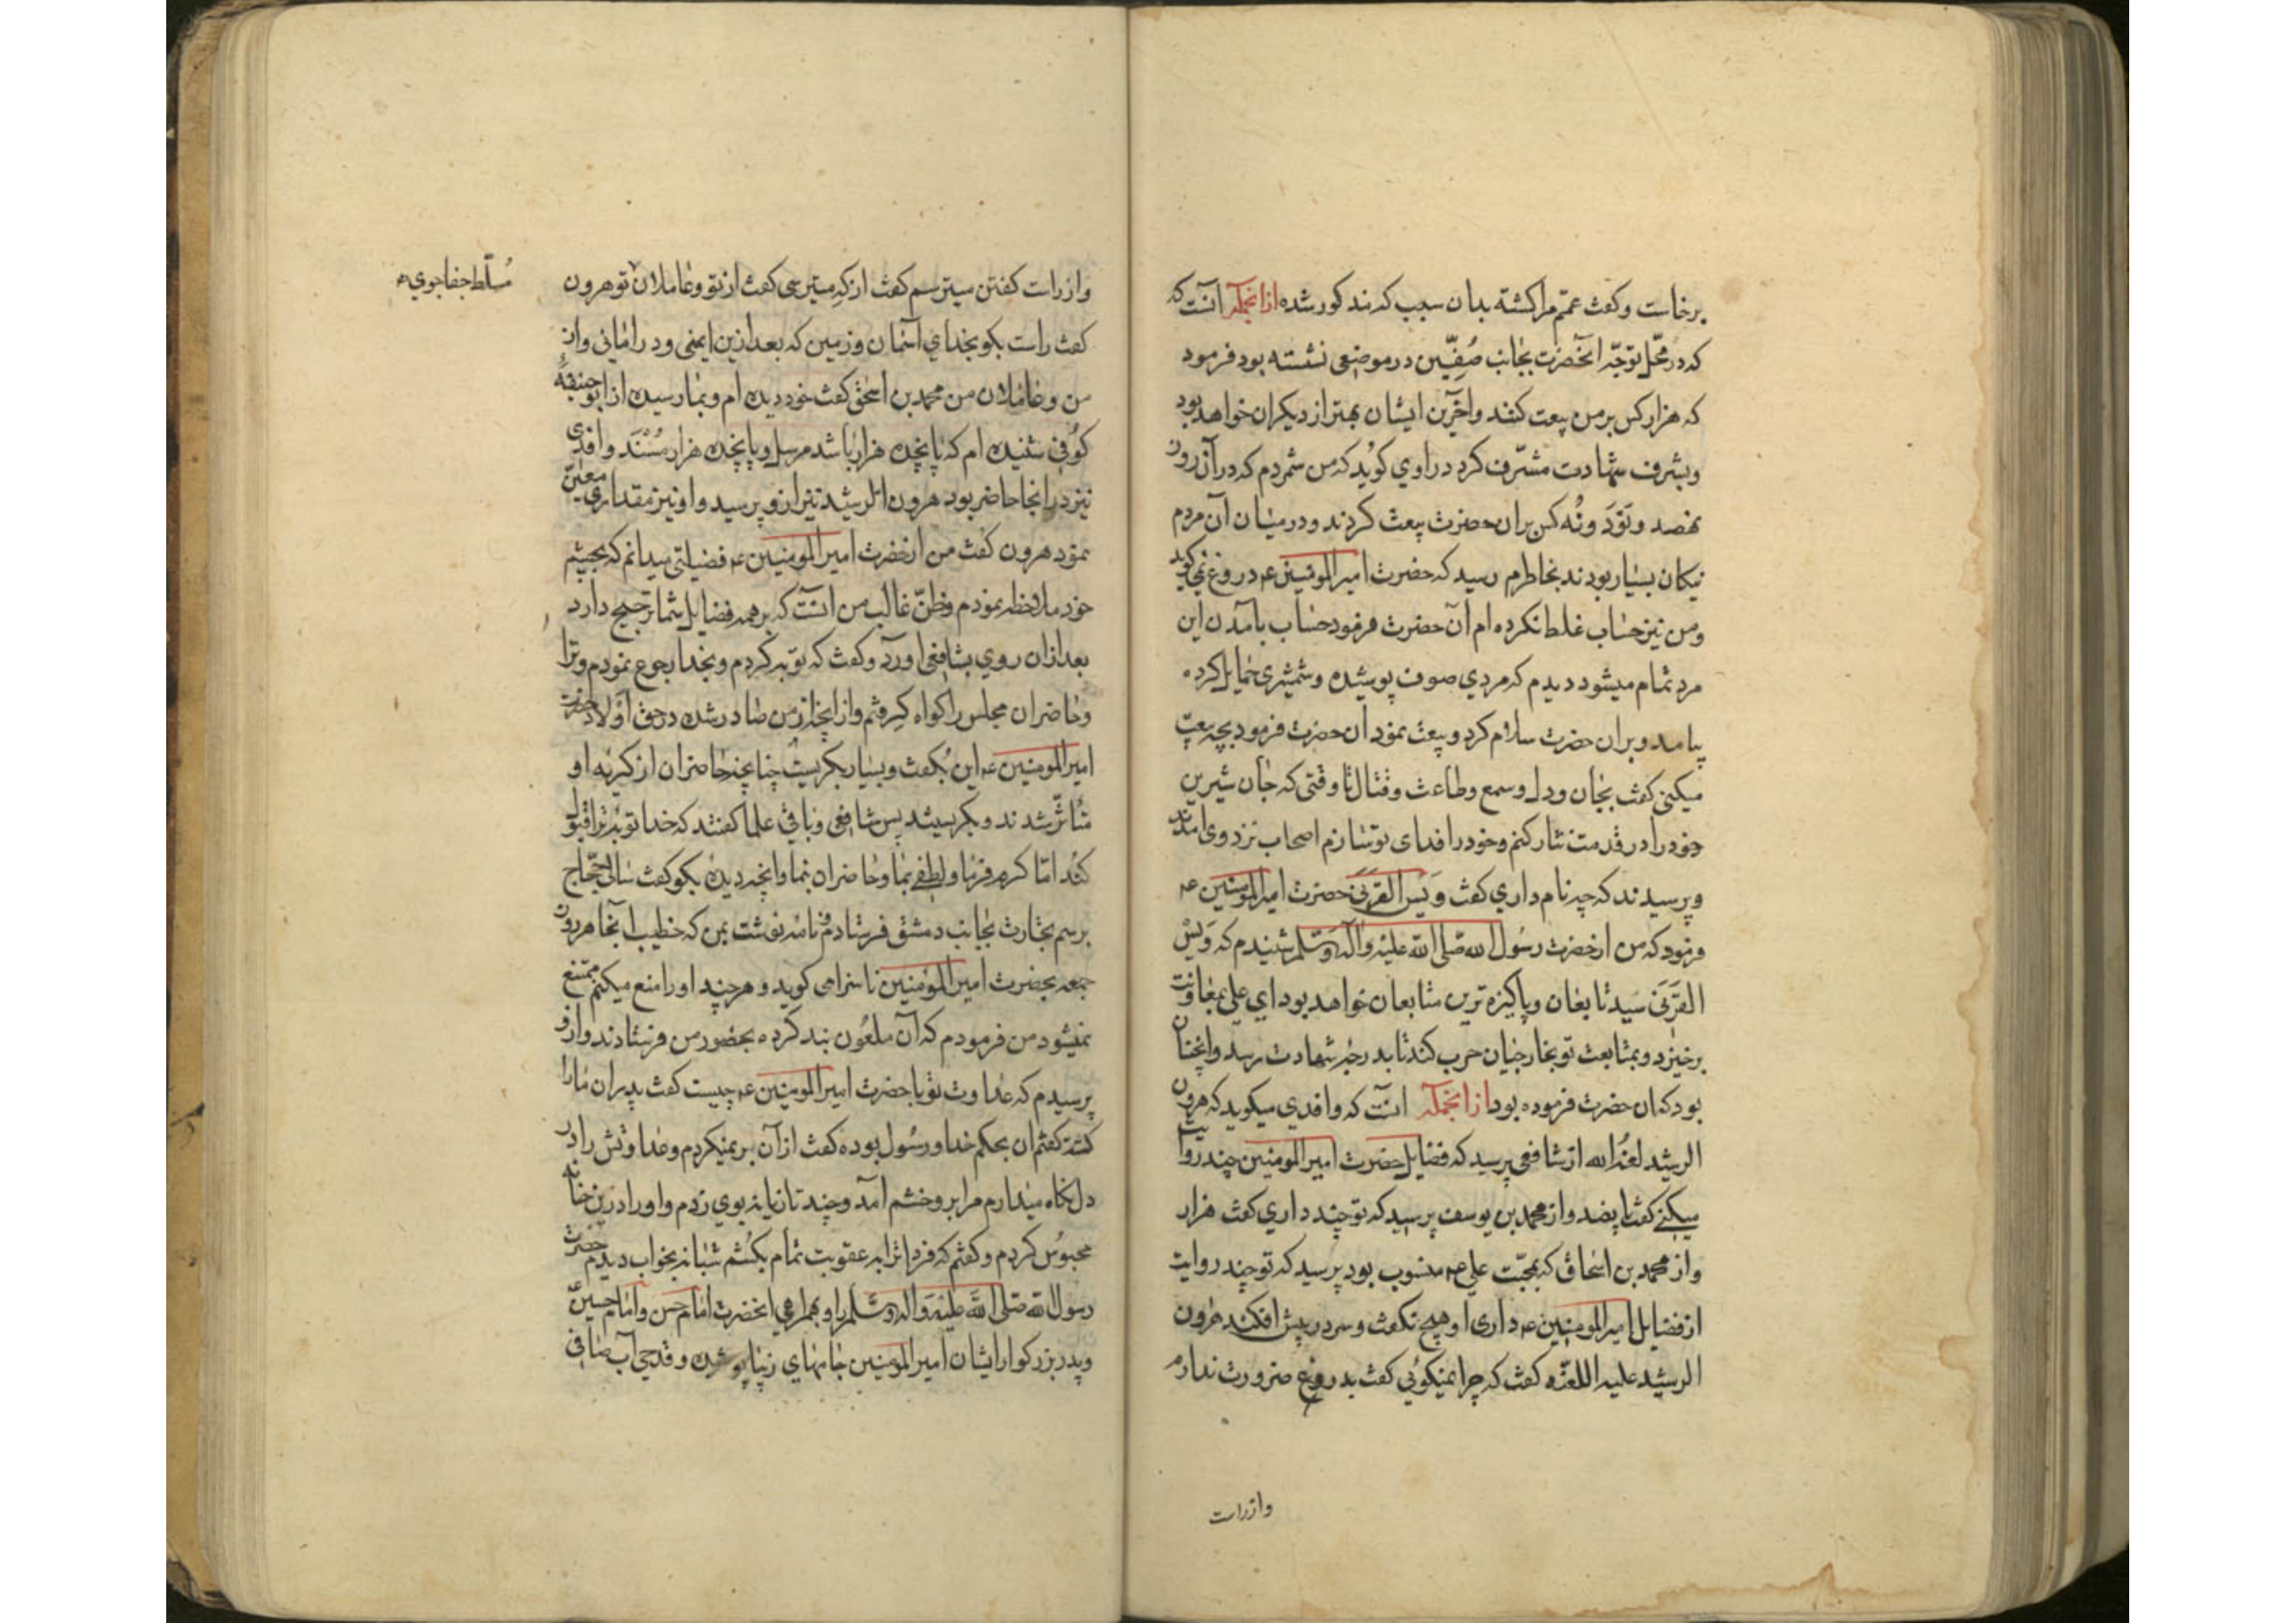 برخاست و کفت عمّ مرا کشته بدان سبب که مذکور شده ازانجمله آنست که
که در محلّ توجّه انحضرت بجانب صُفِّین در موضعی نشسته بود فرمود
که هزار کس بر من بیعت کنند و اخرین ایشان بهتر از دیکران خواهد بود
و بشرف شهادت مشرّف کردد راوی کوید که من شمردم که در آن روز
نهصد و نَوَد و نُه کس بران حضرت بیعت کردند و در میان آن مردم
نیکان بسیار بودند بخاطرم رسید که حضرت امیرالمومنین ع دروغ نمی کوید
و من نیز حساب غلط نکرده ام آن حضرت فرمود حساب بامدن این
مرد تمام میشود دیدم که مردی صوف پوشیده و شمشیری حمایل کرده
بیامد و بران حضرت سلام کرد و بیعت نمود ان حضرت فرمود بچه بیعت
میکنی کفت بجان و دل و سمع و طاعت و قتال تا وقتی که جان شیرین
خود را در قدمت نثار کنم و خود را فدای تو سازم اصحاب نزد وی امدند
و پرسیدند که چه نام داری کفت وَیس القرَنی حضرت امیرالمومنین ع
فرمود که من ازحضرت رسُول الله صلی الله علیه وآله وسلم شنیدم که وَیسْ
القرَنی سید تابعان و پاکیزه ترین متابعان خواهد بود ای علی بمعاونت
برخیزد و بمتابعت تو بخارجیان حرب کند تا بدرجه شهادت رسد و انچنان
بود که ان حضرت فرموده بود ازانجمله انست که واقدی میکوید که هرون
الرشید لعنه الله از شافعی پرسید که فضایل حضرت امیرالمومنین چند روایت
میکنی کفت تا پانصد و از محمد بن یوسف پرسید که تو چند داری کفت هزار
و از محمد بن اسحاق که بمحبّت علی ع منسوب بود پرسید که تو چند روایت
از فضایل امیرالمومنین ع داری او هیچ نکفت و سر در پیش افکند هرون
الرشید علیه اللعنه کفت که چرا نمیکوئی کفت بدروغ ضرورت ندارم
وازراست
وازراست کفتن میترسم کفت از که میترسی کفت از تو و عاملان تو هرون
کفت راست بکو بخدای آسمان و زمین که بعد ازین ایمنی و در امانی و از
من و عاملان من محمد بن اسحق کفت خود دیده ام و بما رسیده از ابوحنیفهٔ
کوُفی شنیده ام که پانچده هزار باشد مرسل و پانچده هزار مُسْنَد واقدی
نیز در انجا حاضر بود هرون الرشید نیز ازو پرسید و او نیز مقداری معیّن
نمود هرون کفت من ازحضرت امیرالمومنین ع فضیلتی میدانم که بچشم
خود ملاحظه نمودم و ظنّ غالب من انست که بر همه فضایل شما ترجیح دارد
بعد ازان روی بشافعی اورد و کفت که توبه کردم و بخدا رجوع نمودم و ترا
و حاضران مجلس را کواه کرفتم و از انچه از من صادر شده در حق اولاد حضرت
امیرالمومنین ع این بُکفت و بسیار بکریست چنانچه حاضران از کریه او
متأثّر شدند و بکریستند پس شافعی و باقی علما کفتند که خدا توبهٔ ترا قبول
کند امّا کرم فرما و لطفی بما و حاضران نما و انچه دیده بکو کفت سالی حجّاج
برسم تجارت بجانب دمشق فرستادم نامه نوشت بمن که خطیب انجا هر روز
جمعه بحضرت امیرالمؤمنین ناسزا می کوید و هرچند او را منع میکنم ممتنع
نمیشود من فرمودم که آن ملعُون بند کرده بحضور من فرستادند و ازو
پرسیدم که عداوت تو با حضرت امیرالمومنین ع چیست کفت پدران ما را
کشته کفتم ان بحکم خدا و رسُول بوده کفت از آن بر نمیکردم و عداوتش را در
دل نکاه میدارم مرا بر وخشم امد و چند تازیانه بوی زدم و او را درین خانه
محبوُس کردم و کفتم که فردا ترا به عقوبت تمام بکُشم شبانه بخواب دیدم حضرت
رسول الله صلی الله علیه و اله وسلم را و بهمراهی انحضرت امام حسن و امام حسین
و پدر بزرکوار ایشان امیرالمومنین جامهای زیبا پوشیده و قدحی آب صافی
مُسلّط جفاجوی